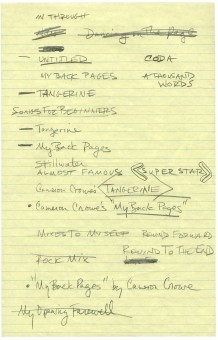 IN THROUGH
Dancing on the Page
— UNTITLED CODA
MY BACK PAGES A THOUSAND WORDS
— TANGERINE
SONGS FOR BEGINNERS
— Tangerine
— My Back Pages
Stillwater
ALMOST FAMOUS SUPERSTAR
Cameron Crowe's TANGERINE
• Cameron Crowe's "My Back Pages"
MIXES TO MYSELF ROUND FORWARD
REWIND TO THE END
ROCK MIX
• "My Back Pages" by Cameron Crowe
My Opening Farewell